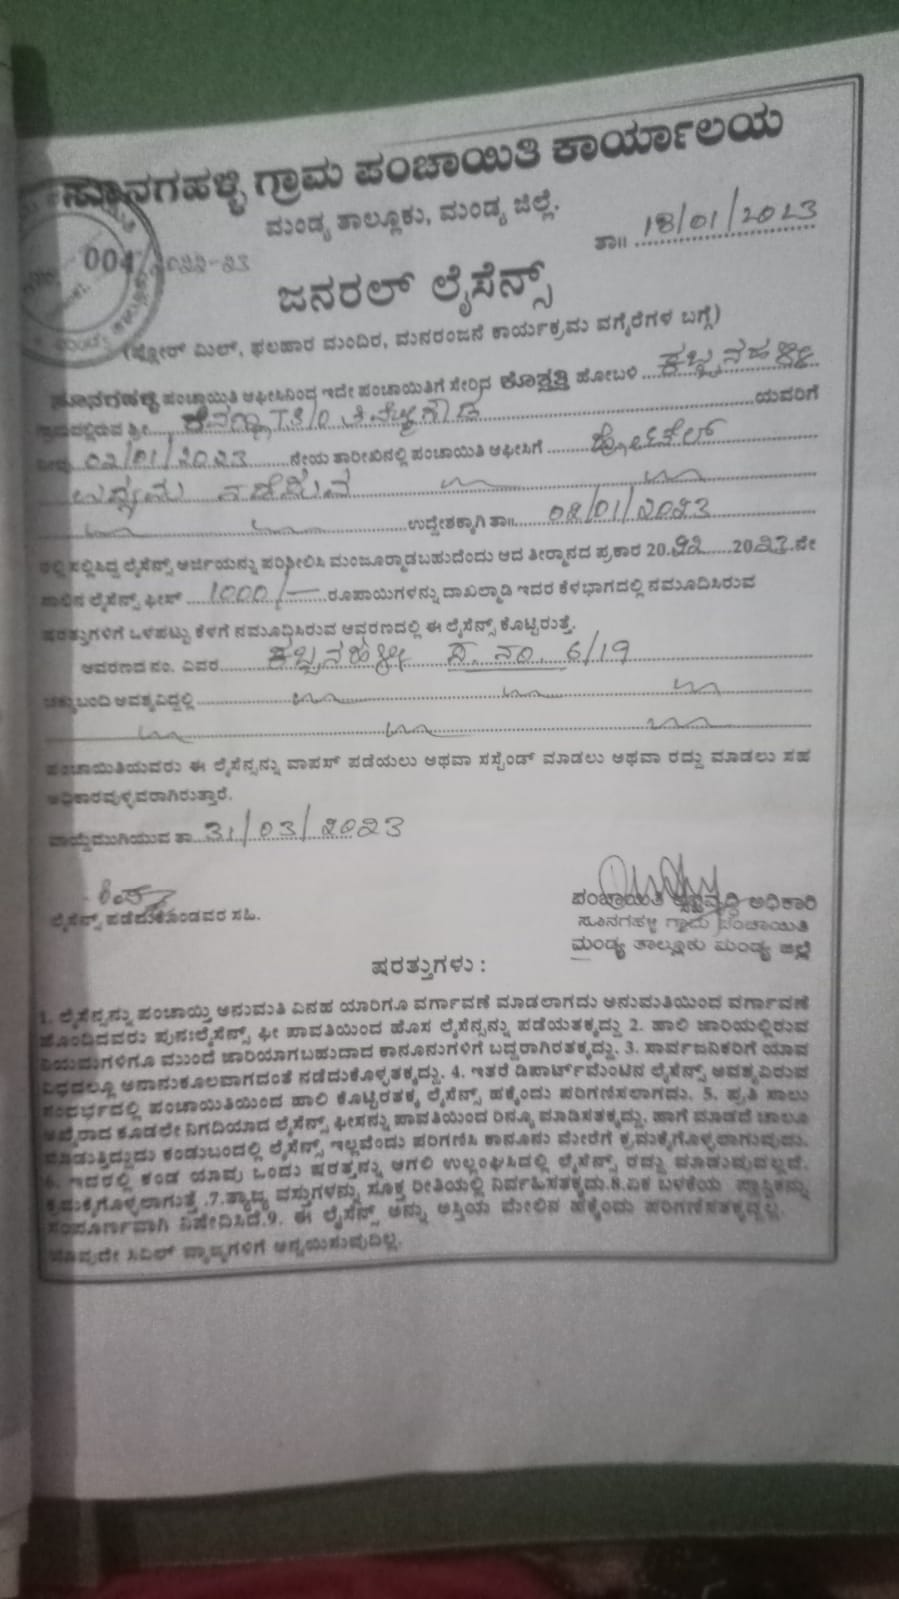 ಸೂನಗಹಳ್ಳಿ ಗ್ರಾಮ ಪಂಚಾಯಿತಿ ಕಾರ್ಯಾಲಯ
ಮಂಡ್ಯ ತಾಲ್ಲೂಕು, ಮಂಡ್ಯ ಜಿಲ್ಲೆ.
ತಾ॥ 18/01/2023
004/2022-23
ಜನರಲ್ ಲೈಸೆನ್ಸ್
(ಫ್ಲೋರ್ ಮಿಲ್, ಫಲಹಾರ ಮಂದಿರ, ಮನರಂಜನೆ ಕಾರ್ಯಕ್ರಮ ವಗೈರೆಗಳ ಬಗ್ಗೆ)
ಸೂನಗಹಳ್ಳಿ ಪಂಚಾಯಿತಿ ಆಫೀಸಿನಿಂದ ಇದೇ ಪಂಚಾಯಿತಿಗೆ ಸೇರಿದ ಕೊತ್ತತ್ತಿ ಹೋಬಳಿ ಕಬ್ಬನಹಳ್ಳಿ
ಗ್ರಾಮದಲ್ಲಿರುವ ಶ್ರೀ ಯವರಿಗೆ
ನೀವು 02/01/2023 ನೇಯ ತಾರೀಖಿನಲ್ಲಿ ಪಂಚಾಯಿತಿ ಆಫೀಸಿಗೆ ಹೋಟೆಲ್
ಉದ್ಯಮ ನಡೆಸುವ
ಉದ್ದೇಶಕ್ಕಾಗಿ ತಾ॥ 02/01/2023
ರಲ್ಲಿ ಸಲ್ಲಿಸಿದ್ದ ಲೈಸೆನ್ಸ್ ಅರ್ಜಿಯನ್ನು ಪರಿಶೀಲಿಸಿ ಮಂಜೂರ್‍ಮಾಡಬಹುದೆಂದು ಆದ ತೀರ್ಮಾನದ ಪ್ರಕಾರ 2022 2023 ನೇ
ಸಾಲಿನ ಲೈಸೆನ್ಸ್ ಫೀಸ್ 1000/- ರೂಪಾಯಿಗಳನ್ನು ದಾಖಲ್ಮಾಡಿ ಇದರ ಕೆಳಭಾಗದಲ್ಲಿ ನಮೂದಿಸಿರುವ
ಷರತ್ತುಗಳಿಗೆ ಒಳಪಟ್ಟು ಕೆಳಗೆ ನಮೂದಿಸಿರುವ ಆವರಣದಲ್ಲಿ ಈ ಲೈಸೆನ್ಸ್ ಕೊಟ್ಟಿರುತ್ತೆ.
ಆವರಣದ ನಂ. ವಿವರ ಕಬ್ಬನಹಳ್ಳಿ ಸ. ನಂ. 6/19
ಚಕ್ಕುಬಂದಿ ಅವಶ್ಯವಿದ್ದಲ್ಲಿ
ಪಂಚಾಯಿತಿಯವರು ಈ ಲೈಸೆನ್ಸನ್ನು ವಾಪಸ್ ಪಡೆಯಲು ಅಥವಾ ಸಸ್ಪೆಂಡ್ ಮಾಡಲು ಅಥವಾ ರದ್ದು ಮಾಡಲು ಸಹ
ಅಧಿಕಾರವುಳ್ಳವರಾಗಿರುತ್ತಾರೆ.
ವಾಯ್ದೆಮುಗಿಯುವ ತಾ 31/03/2023
ಲೈಸೆನ್ಸ್ ಪಡೆದುಕೊಂಡವರ ಸಹಿ.
ಪಂಚಾಯಿತಿ ಅಭಿವೃದ್ಧಿ ಅಧಿಕಾರಿ
ಸೂನಗಹಳ್ಳಿ ಗ್ರಾಮ ಪಂಚಾಯಿತಿ
ಮಂಡ್ಯ ತಾಲ್ಲೂಕು ಮಂಡ್ಯ ಜಿಲ್ಲೆ
ಷರತ್ತುಗಳು :
1. ಲೈಸೆನ್ಸನ್ನು ಪಂಚಾಯ್ತಿ ಅನುಮತಿ ವಿನಹ ಯಾರಿಗೂ ವರ್ಗಾವಣೆ ಮಾಡಲಾಗದು ಅನುಮತಿಯಿಂದ ವರ್ಗಾವಣೆ
ಹೊಂದಿದವರು ಪುನಃಲೈಸೆನ್ಸ್ ಫೀ ಪಾವತಿಯಿಂದ ಹೊಸ ಲೈಸೆನ್ಸನ್ನು ಪಡೆಯತಕ್ಕದ್ದು 2. ಹಾಲಿ ಜಾರಿಯಲ್ಲಿರುವ
ನಿಯಮಗಳಿಗೂ ಮುಂದೆ ಜಾರಿಯಾಗಬಹುದಾದ ಕಾನೂನುಗಳಿಗೆ ಬದ್ಧರಾಗಿರತಕ್ಕದ್ದು. 3. ಸಾರ್ವಜನಿಕರಿಗೆ ಯಾವ
ವಿಧದಲ್ಲೂ ಅನಾನುಕೂಲವಾಗದಂತೆ ನಡೆದುಕೊಳ್ಳತಕ್ಕದ್ದು. 4. ಇತರೆ ಡಿಪಾರ್ಟ್‌ಮೆಂಟಿನ ಲೈಸೆನ್ಸ್ ಅವಶ್ಯವಿರುವ
ಸಂದರ್ಭದಲ್ಲಿ ಪಂಚಾಯಿತಿಯಿಂದ ಹಾಲಿ ಕೊಟ್ಟಿರತಕ್ಕ ಲೈಸೆನ್ಸ್ ಹಕ್ಕೆಂದು ಪರಿಗಣಿಸಲಾಗದು. 5. ಪ್ರತಿ ಸಾಲು
ಅಖೈರಾದ ಕೂಡಲೇ ನಿಗದಿಯಾದ ಲೈಸೆನ್ಸ್ ಫೀಸನ್ನು ಪಾವತಿಯಿಂದ ರಿನ್ಯೂ ಮಾಡಿಸತಕ್ಕದ್ದು. ಹಾಗೆ ಮಾಡದೆ ಚಾಲೂ
ಮಾಡುತ್ತಿದ್ದುದು ಕಂಡುಬಂದಲ್ಲಿ ಲೈಸೆನ್ಸ್ ಇಲ್ಲವೆಂದು ಪರಿಗಣಿಸಿ ಕಾನೂನು ಮೇರೆಗೆ ಕ್ರಮಕೈಗೊಳ್ಳಲಾಗುವುದು.
6. ಇದರಲ್ಲಿ ಕಂಡ ಯಾವು ಒಂದು ಷರತ್ತನ್ನು ಆಗಲಿ ಉಲ್ಲಂಘಿಸಿದಲ್ಲಿ ಲೈಸೆನ್ಸ್ ರದ್ದು ಮಾಡುವುದಲ್ಲದೆ.
ಕ್ರಮಕೈಗೊಳ್ಳಲಾಗುತ್ತೆ .7.ತ್ಯಾಜ್ಯ ವಸ್ತುಗಳನ್ನು ಸೂಕ್ತ ರೀತಿಯಲ್ಲಿ ನಿರ್ವಹಿಸತಕ್ಕದು.8.ಏಕ ಬಳಕೆಯ ಪ್ಲಾಸ್ಟಿಕನ್ನು
ಸಂಪೂರ್ಣವಾಗಿ ನಿಷೇದಿಸಿದೆ.9. ಈ ಲೈಸೆನ್ಸ್ ಅನ್ನು ಆಸ್ತಿಯ ಮೇಲಿನ ಹಕ್ಕೆಂದು ಪರಿಗಣಿಸತಕ್ಕದ್ದಲ್ಲ.
ಯಾವುದೇ ಸಿವಿಲ್ ವ್ಯಾಜ್ಯಗಳಿಗೆ ಅನ್ವಯಿಸುವುದಿಲ್ಲ.